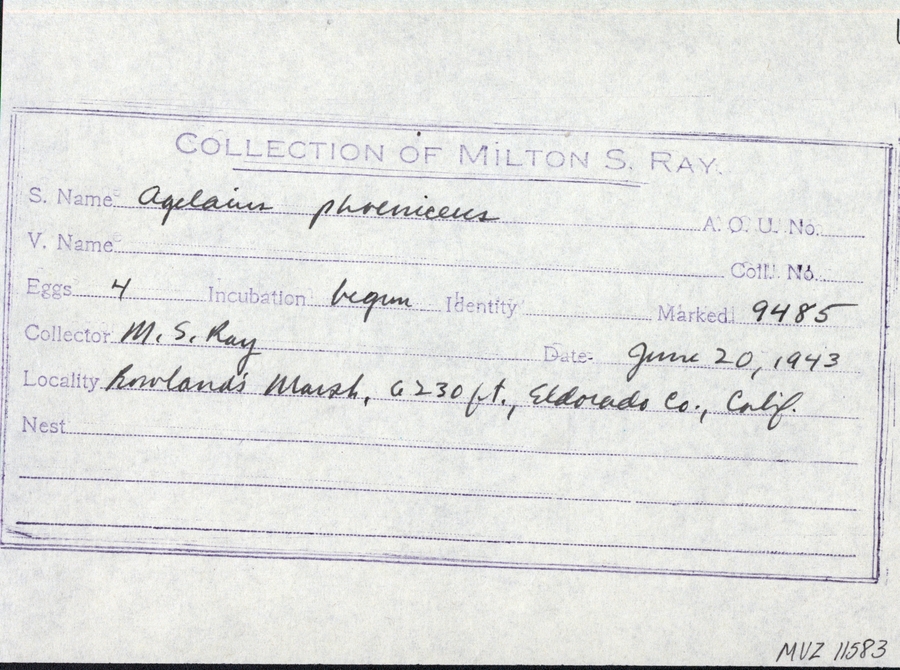 COLLECTION OF MILTON S. RAY.
S. Name Agelaius phoeniceus A. O. U. No.
V. Name Coll. No.
Eggs 4 Incubation begun Identity Marked 9485
Collector M. S. Ray Date June 20, 1943
Locality Rowlands Marsh, 6230 ft., Eldorado Co., Calif.
Nest
MVZ 11583